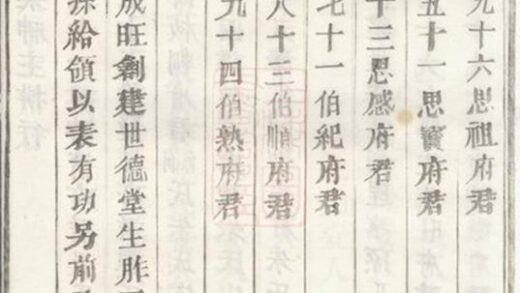 九十六思祖府君
五十一思寳府君
十三思感府君
七十一伯紀府君
八十三伯順府君
九十四伯熟府君
成旺創建世德堂生胙
孫給領以表有功另前